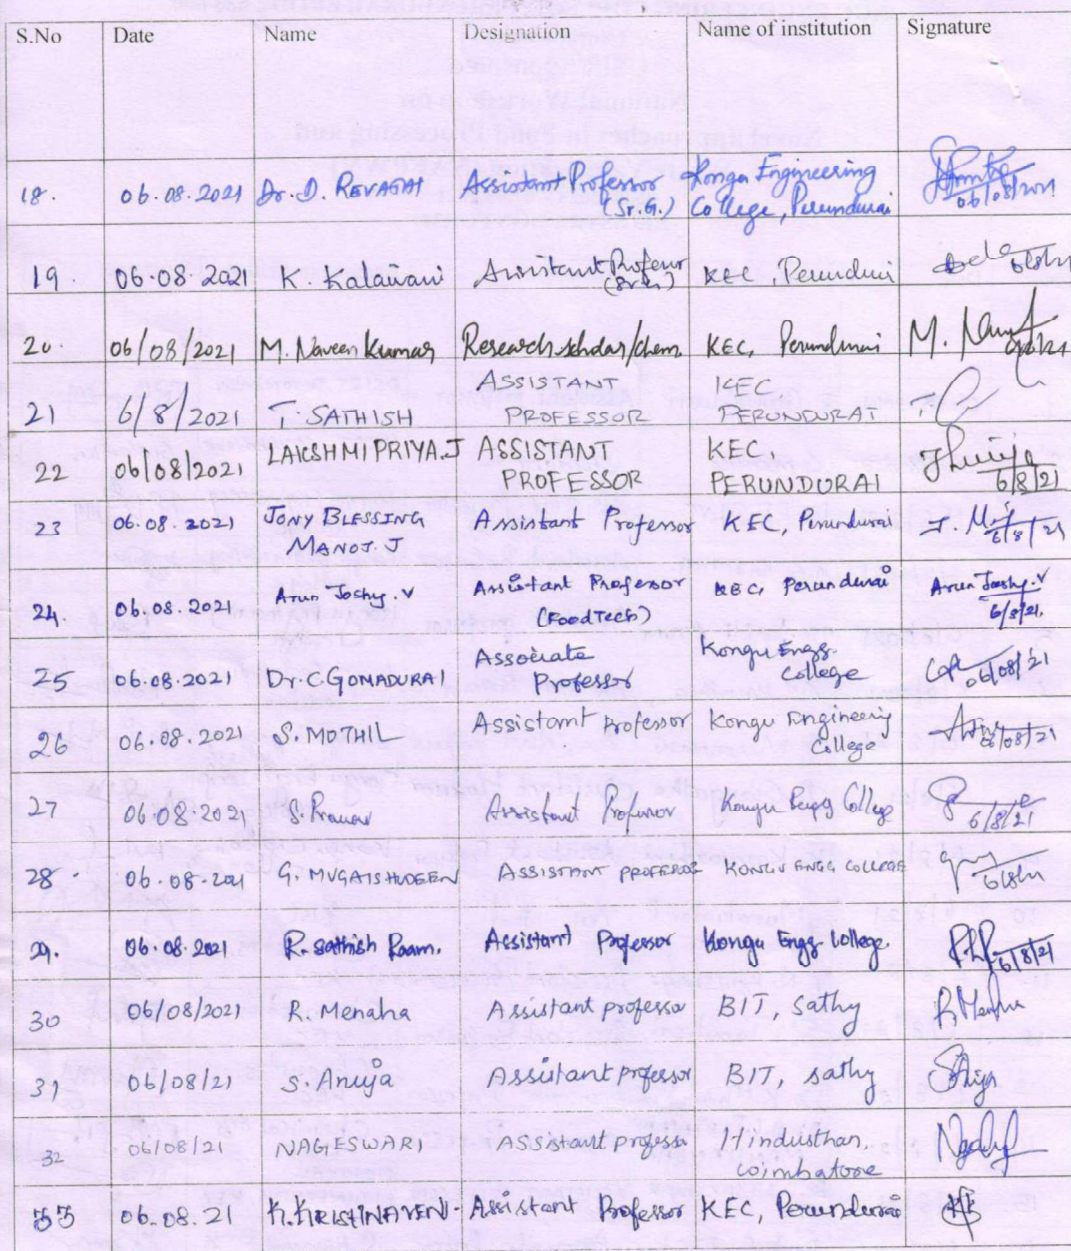 S.No Date Name Designation Name of institution Signature
18. 06.08.2021 Dr. D. REVATHI Assistant Professor (Sr.G.) Kongu Engineering College, Perundurai 06/08/2021
19. 06.08.2021 K. Kalaivani Assistant Professor (Sr.G) KEC, Perundurai
20. 06/08/2021 M. Naveen Kumar Research scholar/chem. KEC, Perundurai M.
21 6/8/2021 T. SATHISH ASSISTANT PROFESSOR KEC PERUNDURAI
22 06/08/2021 LAKSHMI PRIYA.J ASSISTANT PROFESSOR KEC PERUNDURAI 6/8/21
23 06.08.2021 JONY BLESSING MANOJ. J Assistant Professor KEC, Perundurai J. 6/8/21
24. 06.08.2021 Arun Joshy. V Assistant Professor (FoodTech) KEC, Perundurai Arun Joshy. V 6/8/21
25 06.08.2021 Dr. C GOMADURAI Associate Professor Kongu Engg. College 06/08/21
26 06.08.2021 S. MOTHIL Assistant Professor Kongu Engineering College 06/08/21
27 06.08.2021 S. Assistant Professor Kongu Engg College 6/8/21
28 06.08.2021 G. Assistant Professor KONGU ENGG COLLEGE
29. 06.08.2021 R. Sathish Raam. Assistant Professor Kongu Engg. College. 6/8/21
30 06/08/2021 R. Menaha Assistant professor BIT, Sathy R Menaha
31 06/08/21 S. Anuja Assistant professor BIT, Sathy
32 06/08/21 NAGESWARI Assistant professor Hindusthan, Coimbatore
33 06.08.21 K. KRISHNAVENI Assistant Professor KEC, Perundurai